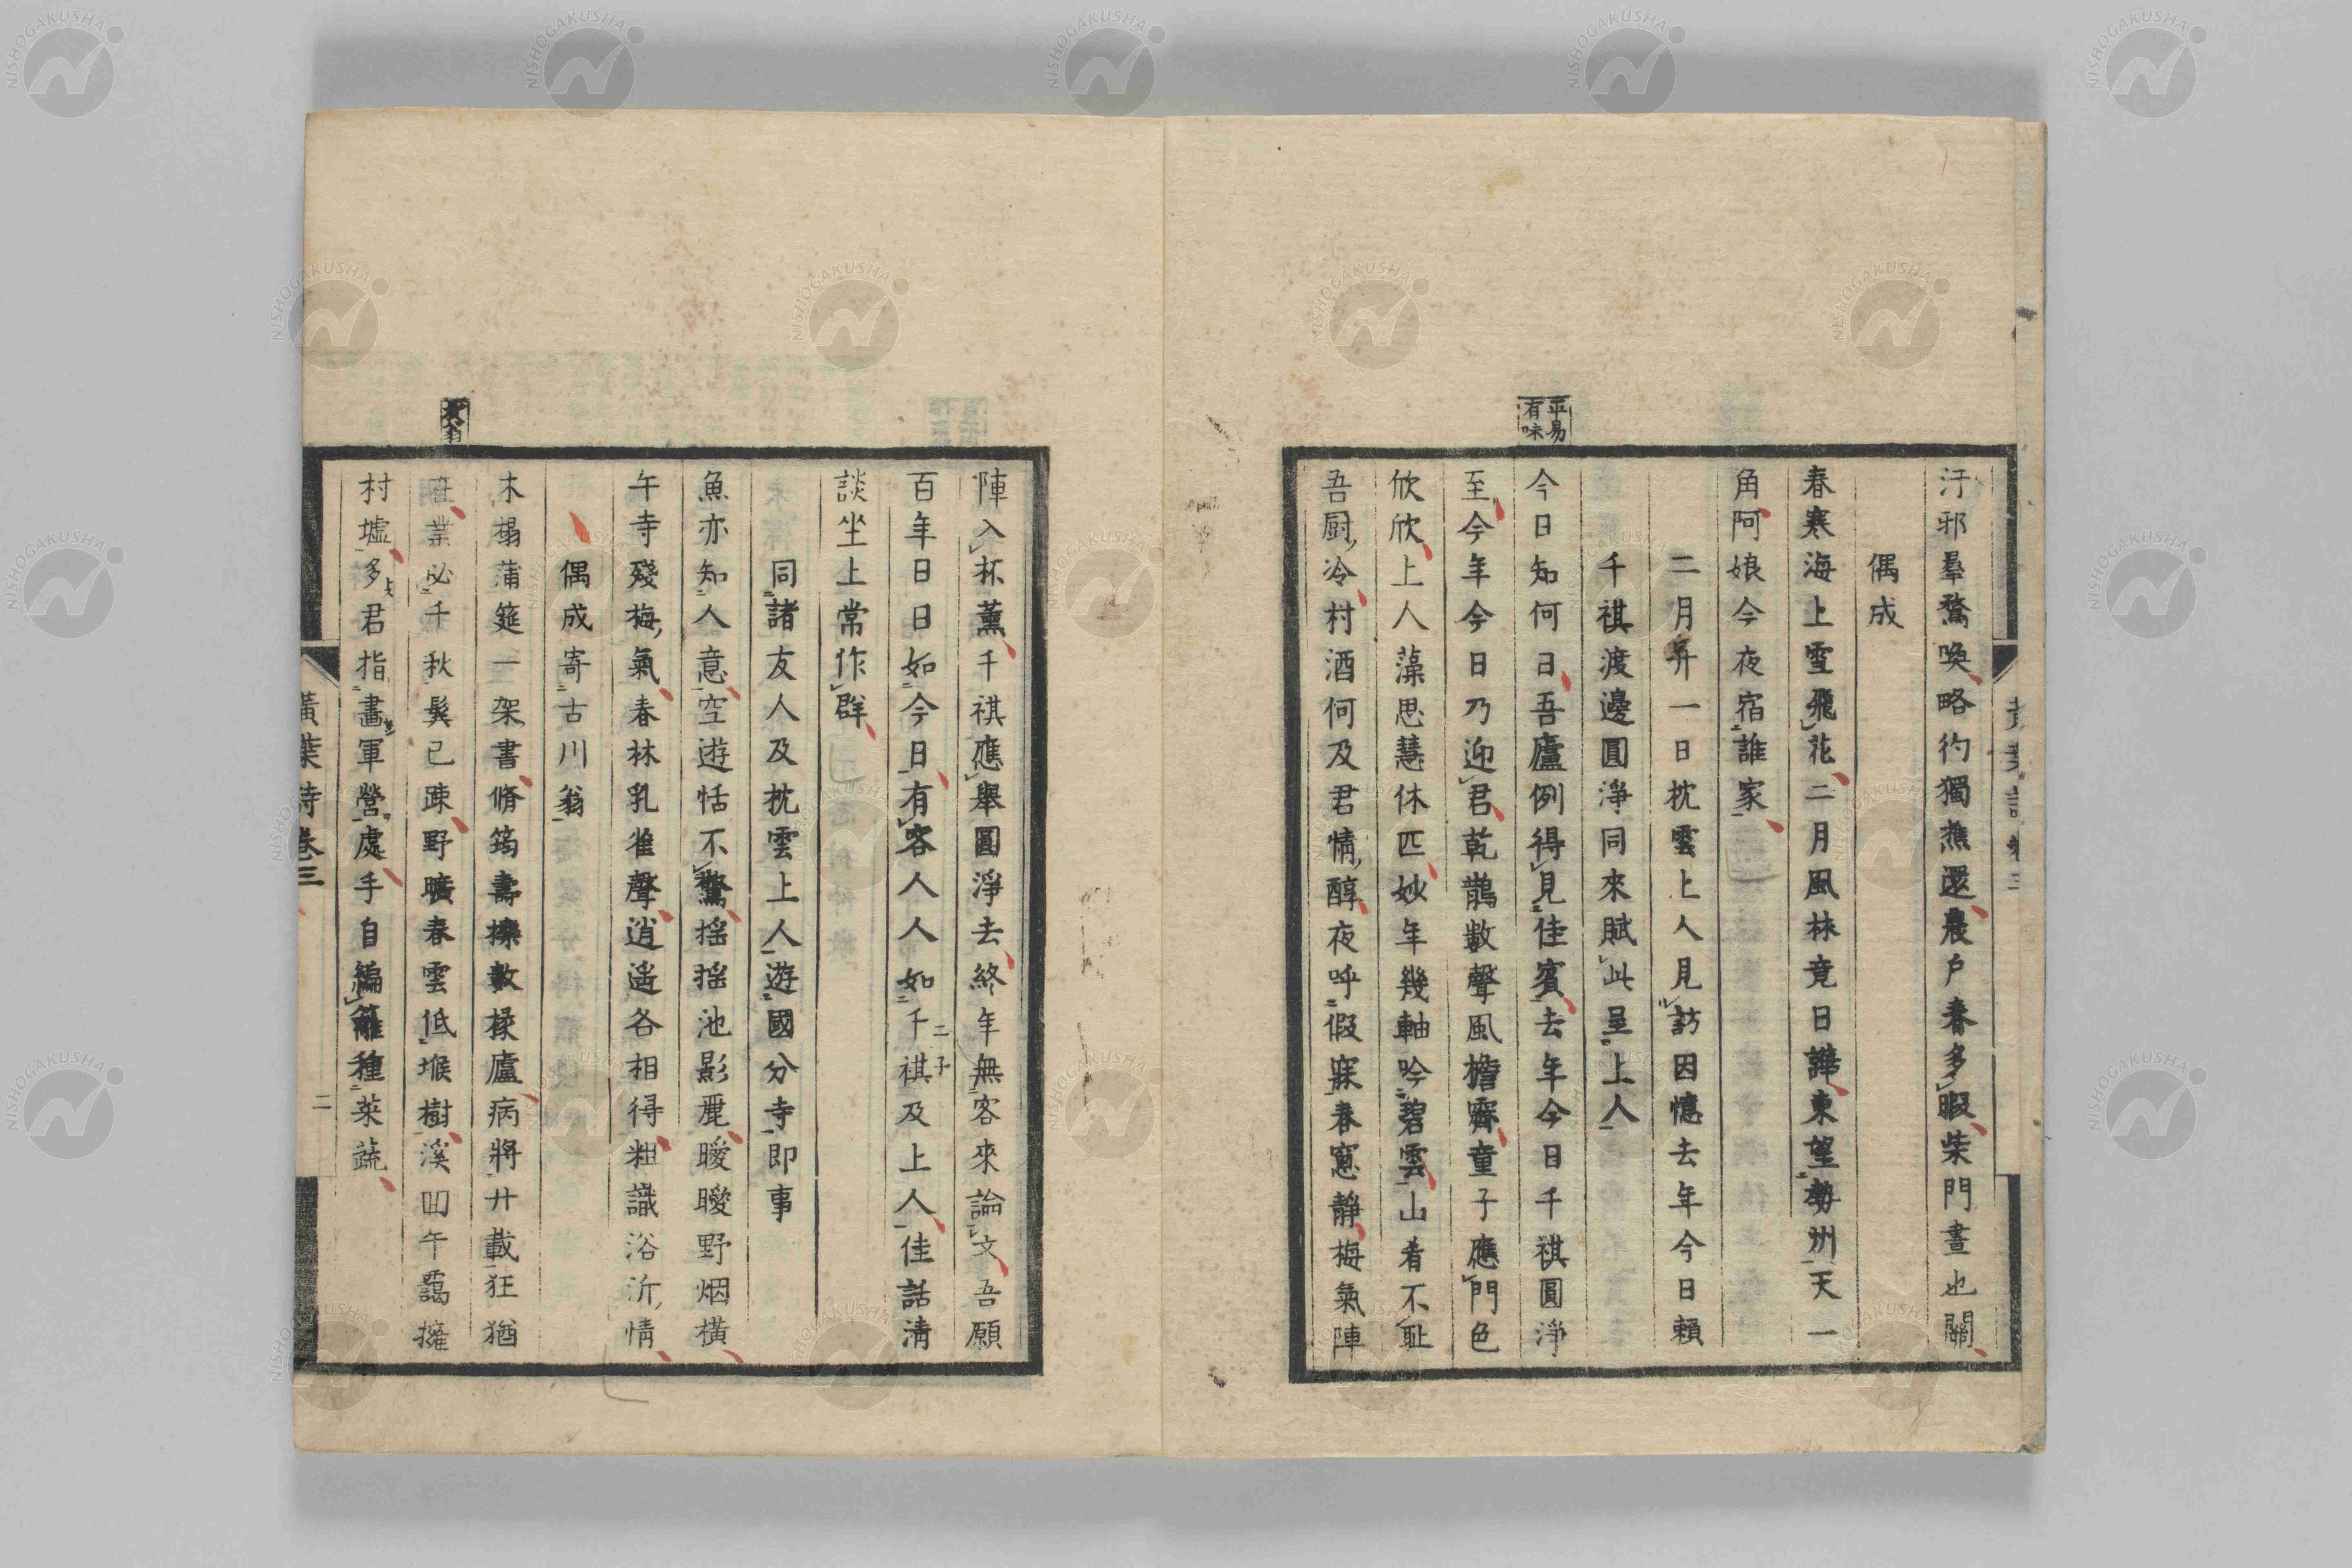 平易
有味
汙邪羣鶩喚略彴獨樵還農戶春多暇柴門晝也關
偶成
春寒海上雪飛花二月風林竟日譁東望勢州天一
角阿娘今夜宿誰家
二月廾一日枕雲上人見訪因憶去年今日賴
千祺渡邊圓淨同來賦此呈上人
今日知何日吾廬例得見佳賓去年今日千祺圓淨
至今年今日乃迎君乾鵲數聲風檐霽童子應門色
欣欣上人藻思慧休匹妙年幾軸吟碧雲山肴不恥
吾厨冷村酒何及君情醇夜呼假寐春窻靜梅氣陣
陣入杯薰千祺應舉圓淨去終年無客來論文吾願
百年日日如今日有客人人如千祺及上人佳話清
二子
談坐上常作群
同諸友人及枕雲上人遊國分寺即事
魚亦知人意空遊恬不驚搖搖池影麗曖曖野烟橫
午寺殘梅氣春林乳雀聲逍遥各相得粗識浴沂情
偶成寄古川翁
木榻蒲筵一架書脩筠壽櫟數椽廬病將廾載狂猶
在業必千秋鬓已疎野曠春雲低堠樹溪凹午靄擁
村墟多君指畵軍營處手自編籬種菜蔬
黃葉詩卷三
二